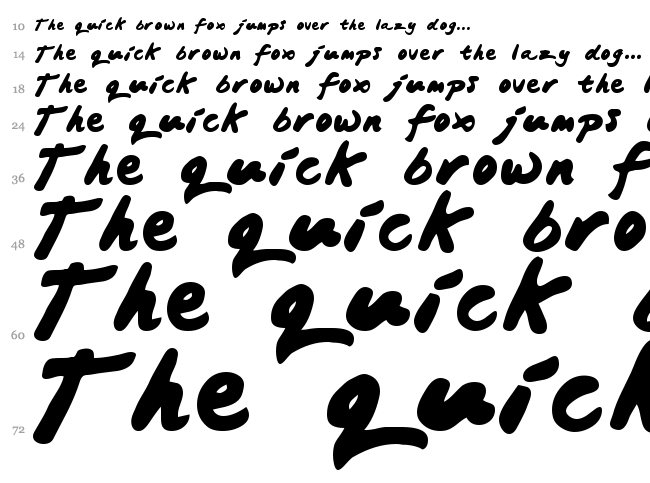 10 The quick brown fox jumps over the lazy dog...
14 The quick brown fox jumps over the lazy dog...
18 The quick brown fox jumps over the
24 The quick brown fox jumps
36 The quick brown f
48 The quick bro
60 The quick
72 The quick